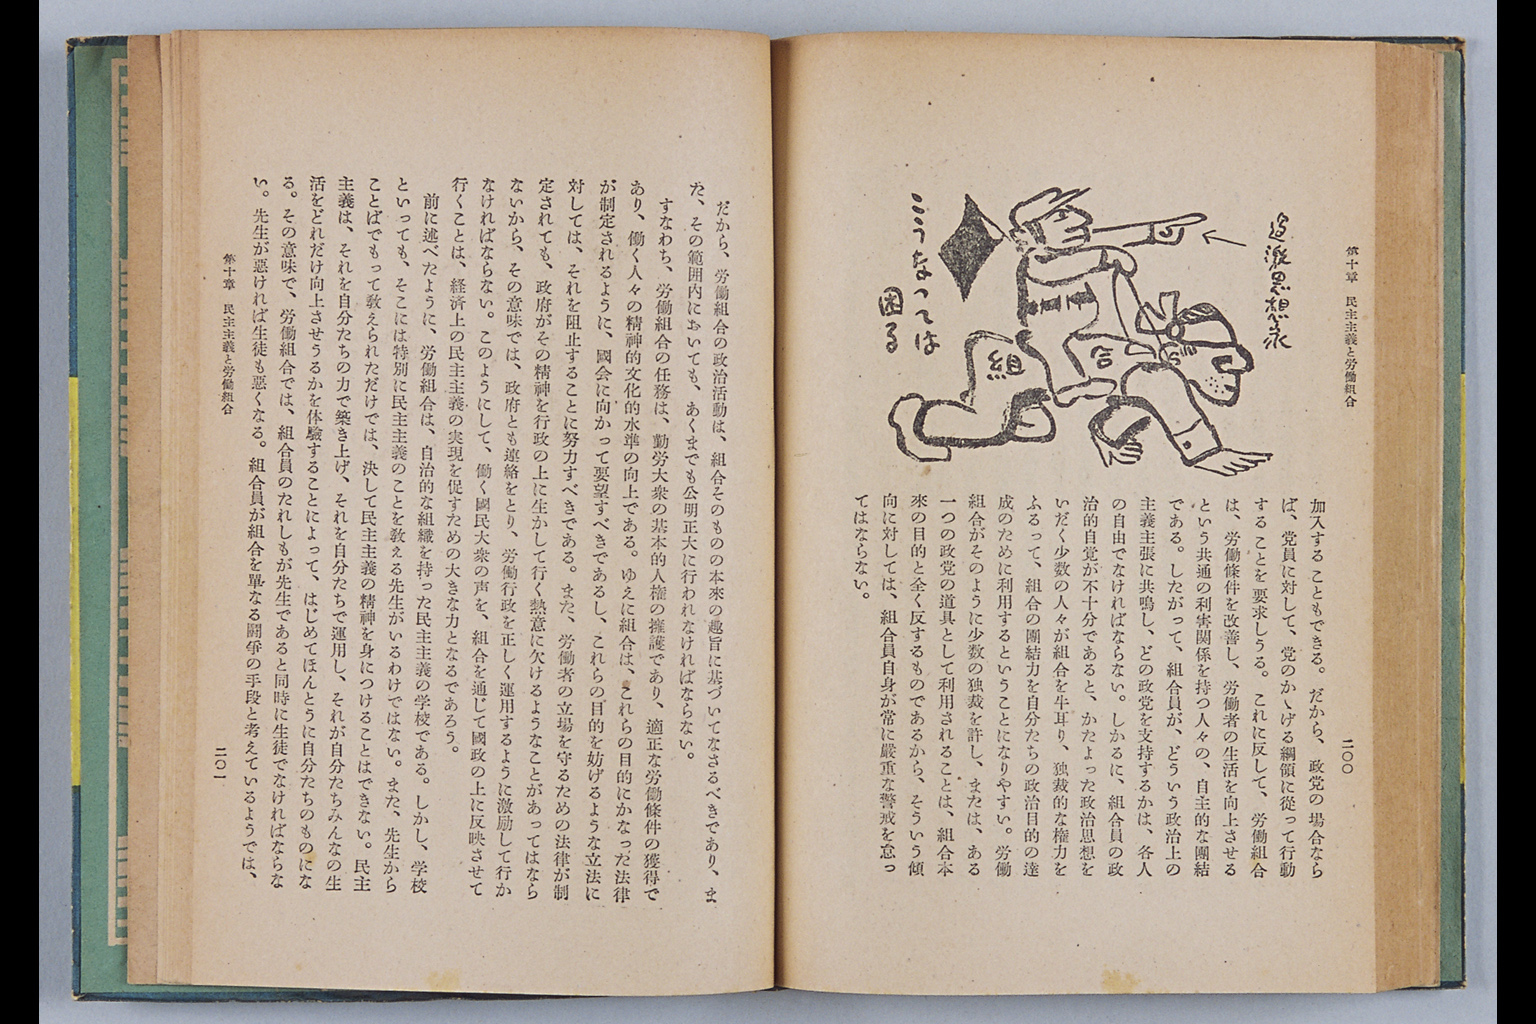 第十章 民主主義と労働組合
二〇〇
過激思想家
組
合
こうなっては
困る
加入することもできる。だから、政党の場合なら
ば、党員に対して、党のかゝげる綱領に従って行動
することを要求しうる。これに反して、労働組合
は、労働條件を改善し、労働者の生活を向上させる
という共通の利害関係を持つ人々の、自主的な團結
である。したがって、組合員が、どういう政治上の
主義主張に共鳴し、どの政党を支持するかは、各人
の自由でなければならない。しかるに、組合員の政
治的自覚が不十分であると、かたよった政治思想を
いだく少数の人々が組合を牛耳り、独裁的な権力を
ふるって、組合の團結力を自分たちの政治目的の達
成のために利用するということになりやすい。労働
組合がそのように少数の独裁を許し、または、ある
一つの政党の道具として利用されることは、組合本
來の目的と全く反するものであるから、そういう傾
向に対しては、組合員自身が常に嚴重な警戒を怠っ
てはならない。
だから、労働組合の政治活動は、組合そのものの本來の趣旨に基づいてなさるべきであり、ま
た、その範囲内においても、あくまでも公明正大に行われなければならない。
すなわち、労働組合の任務は、勤労大衆の基本的人権の擁護であり、適正な労働條件の獲得で
あり、働く人々の精神的文化的水準の向上である。ゆえに組合は、これらの目的にかなった法律
が制定されるように、國会に向かって要望すべきであるし、これらの目的を妨げるような立法に
対しては、それを阻止することに努力すべきである。また、労働者の立場を守るための法律が制
定されても、政府がその精神を行政の上に生かして行く熱意に欠けるようなことがあってはなら
ないから、その意味では、政府とも連絡をとり、労働行政を正しく運用するように激励して行か
なければならない。このようにして、働く國民大衆の声を、組合を通じて國政の上に反映させて
行くことは、経済上の民主主義の実現を促すための大きな力となるであろう。
前に述べたように、労働組合は、自治的な組織を持った民主主義の学校である。しかし、学校
といっても、そこには特別に民主主義のことを教える先生がいるわけではない。また、先生から
ことばでもって教えられただけでは、決して民主主義の精神を身につけることはできない。民主
主義は、それを自分たちの力で築き上げ、それを自分たちで運用し、それが自分たちみんなの生
活をどれだけ向上させうるかを体験することによって、はじめてほんとうに自分たちのものにな
る。その意味で、労働組合では、組合員のたれしもが先生であると同時に生徒でなければならな
い。先生が悪ければ生徒も悪くなる。組合員が組合を單なる闘爭の手段と考えているようでは、
第十章 民主主義と労働組合
二〇一